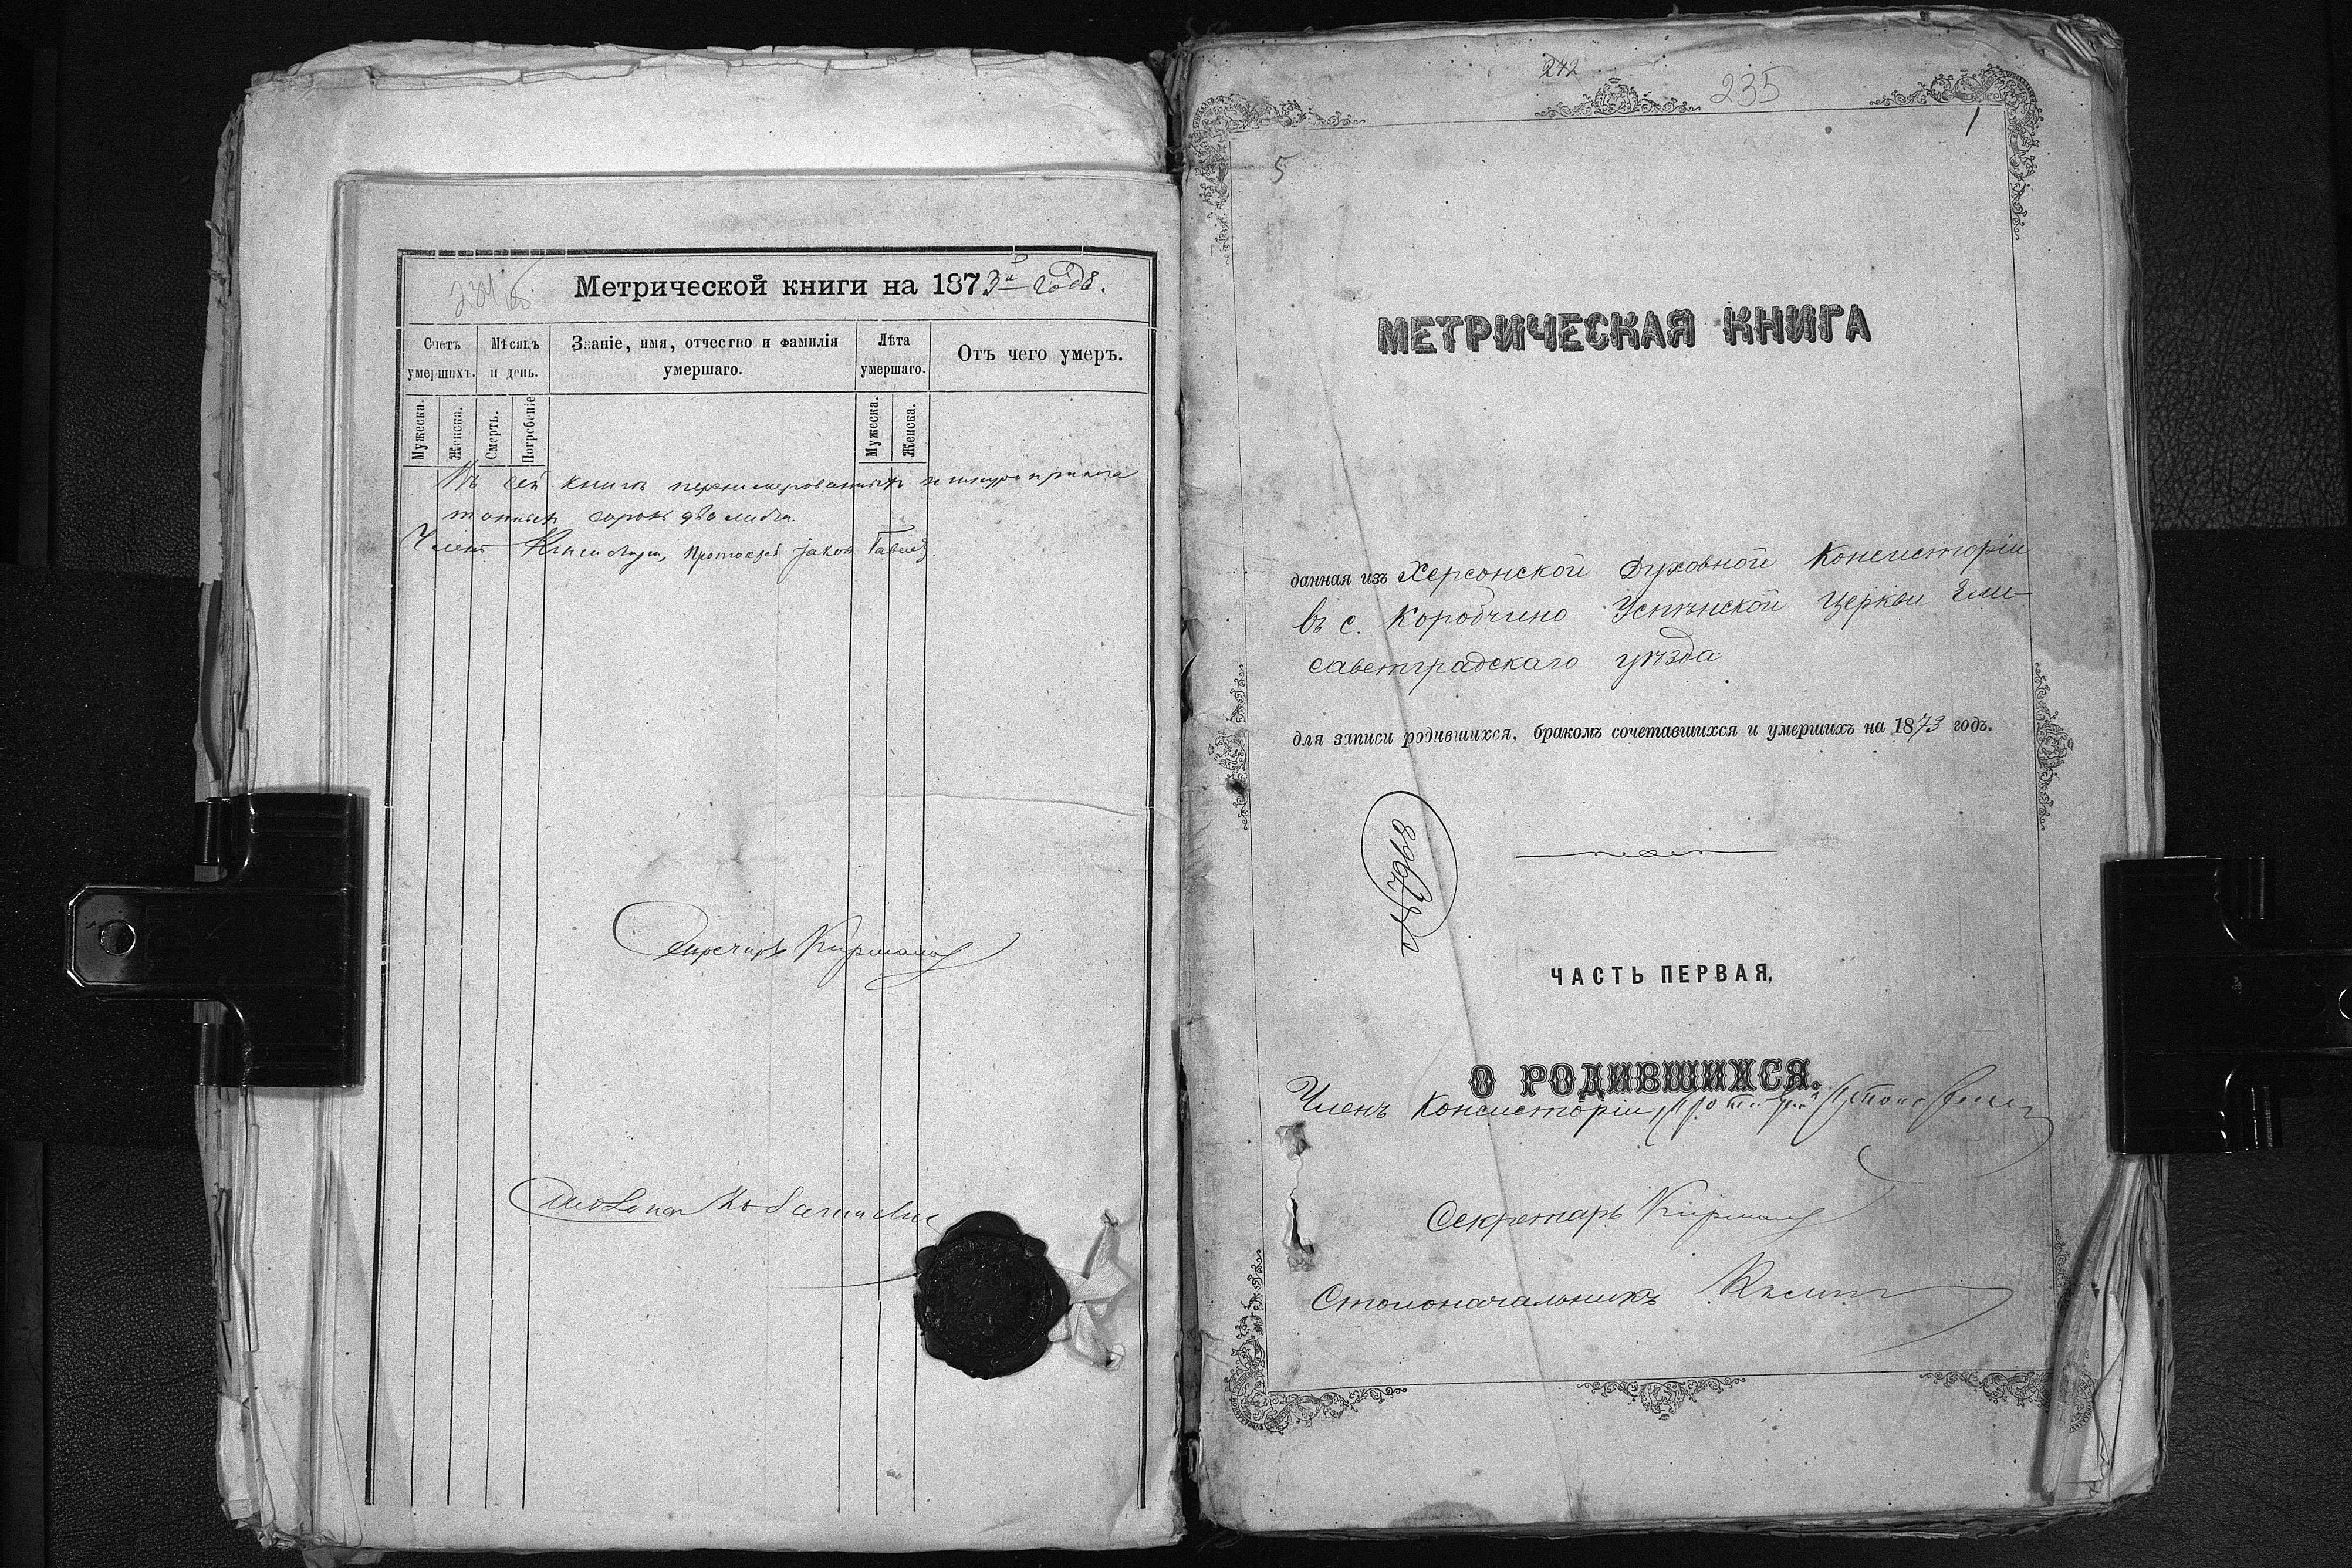 234 об
Метрической книги на 1873й годъ.
Счетъ умершихъ.
Мѣсяцъ и день.
Званіе, имя, отчество и фамилія умершаго.
Лѣта умершаго.
Отъ чего умеръ.
Мужеска.
Женска.
Смерть.
Погребеніе
Мужеска.
Женска.
Въ сей книгѣ перенумерованныхъ и шнуро припеча
танныхъ сорокъ два листа.
Членъ Консисторіи, Протоіерей Іаковъ
Секретарь
242
235
1
5
МЕТРИЧЕСКАЯ КНИГА
данная изъ Херсонской Духовной Консисторіи
въ с. Коробчино Успѣнской Церкви Ели-
саветградскаго уѣзда
для записи родившихся, бракомъ сочетавшихся и умершихъ на 1873 годъ.
№ 7968
ЧАСТЬ ПЕРВАЯ,
О РОДИВШИХСЯ.
Членъ Консисторіи, Протоіерей
Секретарь
Столоначальникъ